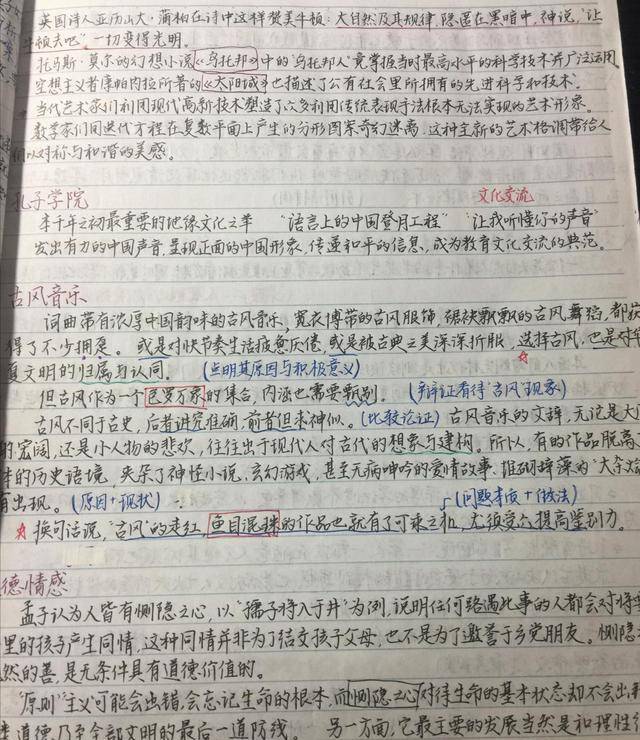 英国诗人亚历山大·蒲柏在诗中这样赞美牛顿:大自然及其规律,隐匿在黑暗中,神说,"让
牛顿去吧"一切变得光明。
托马斯·莫尔的幻想小说《乌托邦》中的"乌托邦人"竟掌握当时最高水平的科学技术并广泛运用
空想主义者康帕内拉所著的《太阳城》也描述了公有社会里所拥有的先进科学和技术。
当代艺术家们利用现代高新技术塑造了众多利用传统表现手法根本无法实现的艺术形象。
数学家们同迭代方程在复数平面上产生的分形图案奇幻迷离,这种全新的艺术格调带给人
们以对称与和谐的美感。
孔子学院 文化交流
本千年之初最重要的地缘文化之举 "语言上的中国登月工程" "让我听懂你的声音"
发出有力的中国声音,呈现正面的中国形象,传递和平的信息,成为教育文化交流的典范。
古风音乐
词曲带有浓厚中国韵味的古风音乐,宽衣博带的古风服饰,裾袂飘飘的古风舞蹈,都获
得了不少拥趸。或是对快节奏生活疲惫厌倦,或是被古典之美深深折服,选择古风,也是对华
夏文明的归属与认同。(点明其原因与积极意义)
但古风作为一个包罗万象的集合,内涵也需要甄别。(辩证看待"古风"现象)
古风不同于古史,后者讲究准确,前者但求神似。(比较论证)古风音乐的文辞,无论是大
的宏阔,还是小人物的悲欢,往往出于现代人对古代的想象与建构。所以,有的作品脱离
的历史语境,夹杂了神怪小说、玄幻游戏,甚至无病呻吟的爱情故事,堆砌辞藻的"大杂烩
有出现。(原因+现状) (问题本质+做法)
☆换句话说,"古风"的走红,鱼目混珠的作品也就有了可乘之机,尤须受众提高鉴别力。
德情感
孟子认为人皆有恻隐之心,以"孺子将入于井"为例,说明任何路遇此事的人都会对将
里的孩子产生同情,这种同情并非为了结交孩子父母,也不是为了邀誉于乡党朋友。恻隐
然的善,是无条件具有道德价值的。
"原则"主义可能会出错,会忘记生命的根本,而恻隐之心对待生命的基本状态却不会出
道德乃至全部文明的最后一道防线。 另一方面,它最主要的发展当然是和理性